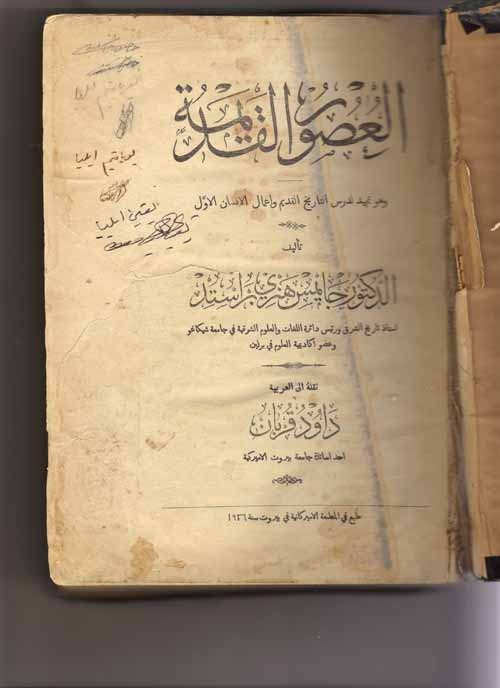 العُصُورُ القَديمَة
وهو تمهيد لدرس التاريخ القديم واعمال الانسان الاوَّل
تأليف
الدكتور جايمس هنري براستد
استاذ تاريخ الشرق ورئيس دائرة اللغات والعلوم الشرقية في جامعة شيكاغو
وعضو اكاديمية العلوم في برلين
نقلهُ الى العربية
داود قربان
احد اساتذة جامعة بيروت الاميركية
طُبع في المطبعة الاميركانية في بيروت سنة ١٩٢٦
يواقيم ايليا
ايليا